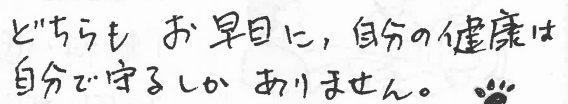 どちらも お早目に, 自分の健康は
自分で守るしか ありません。